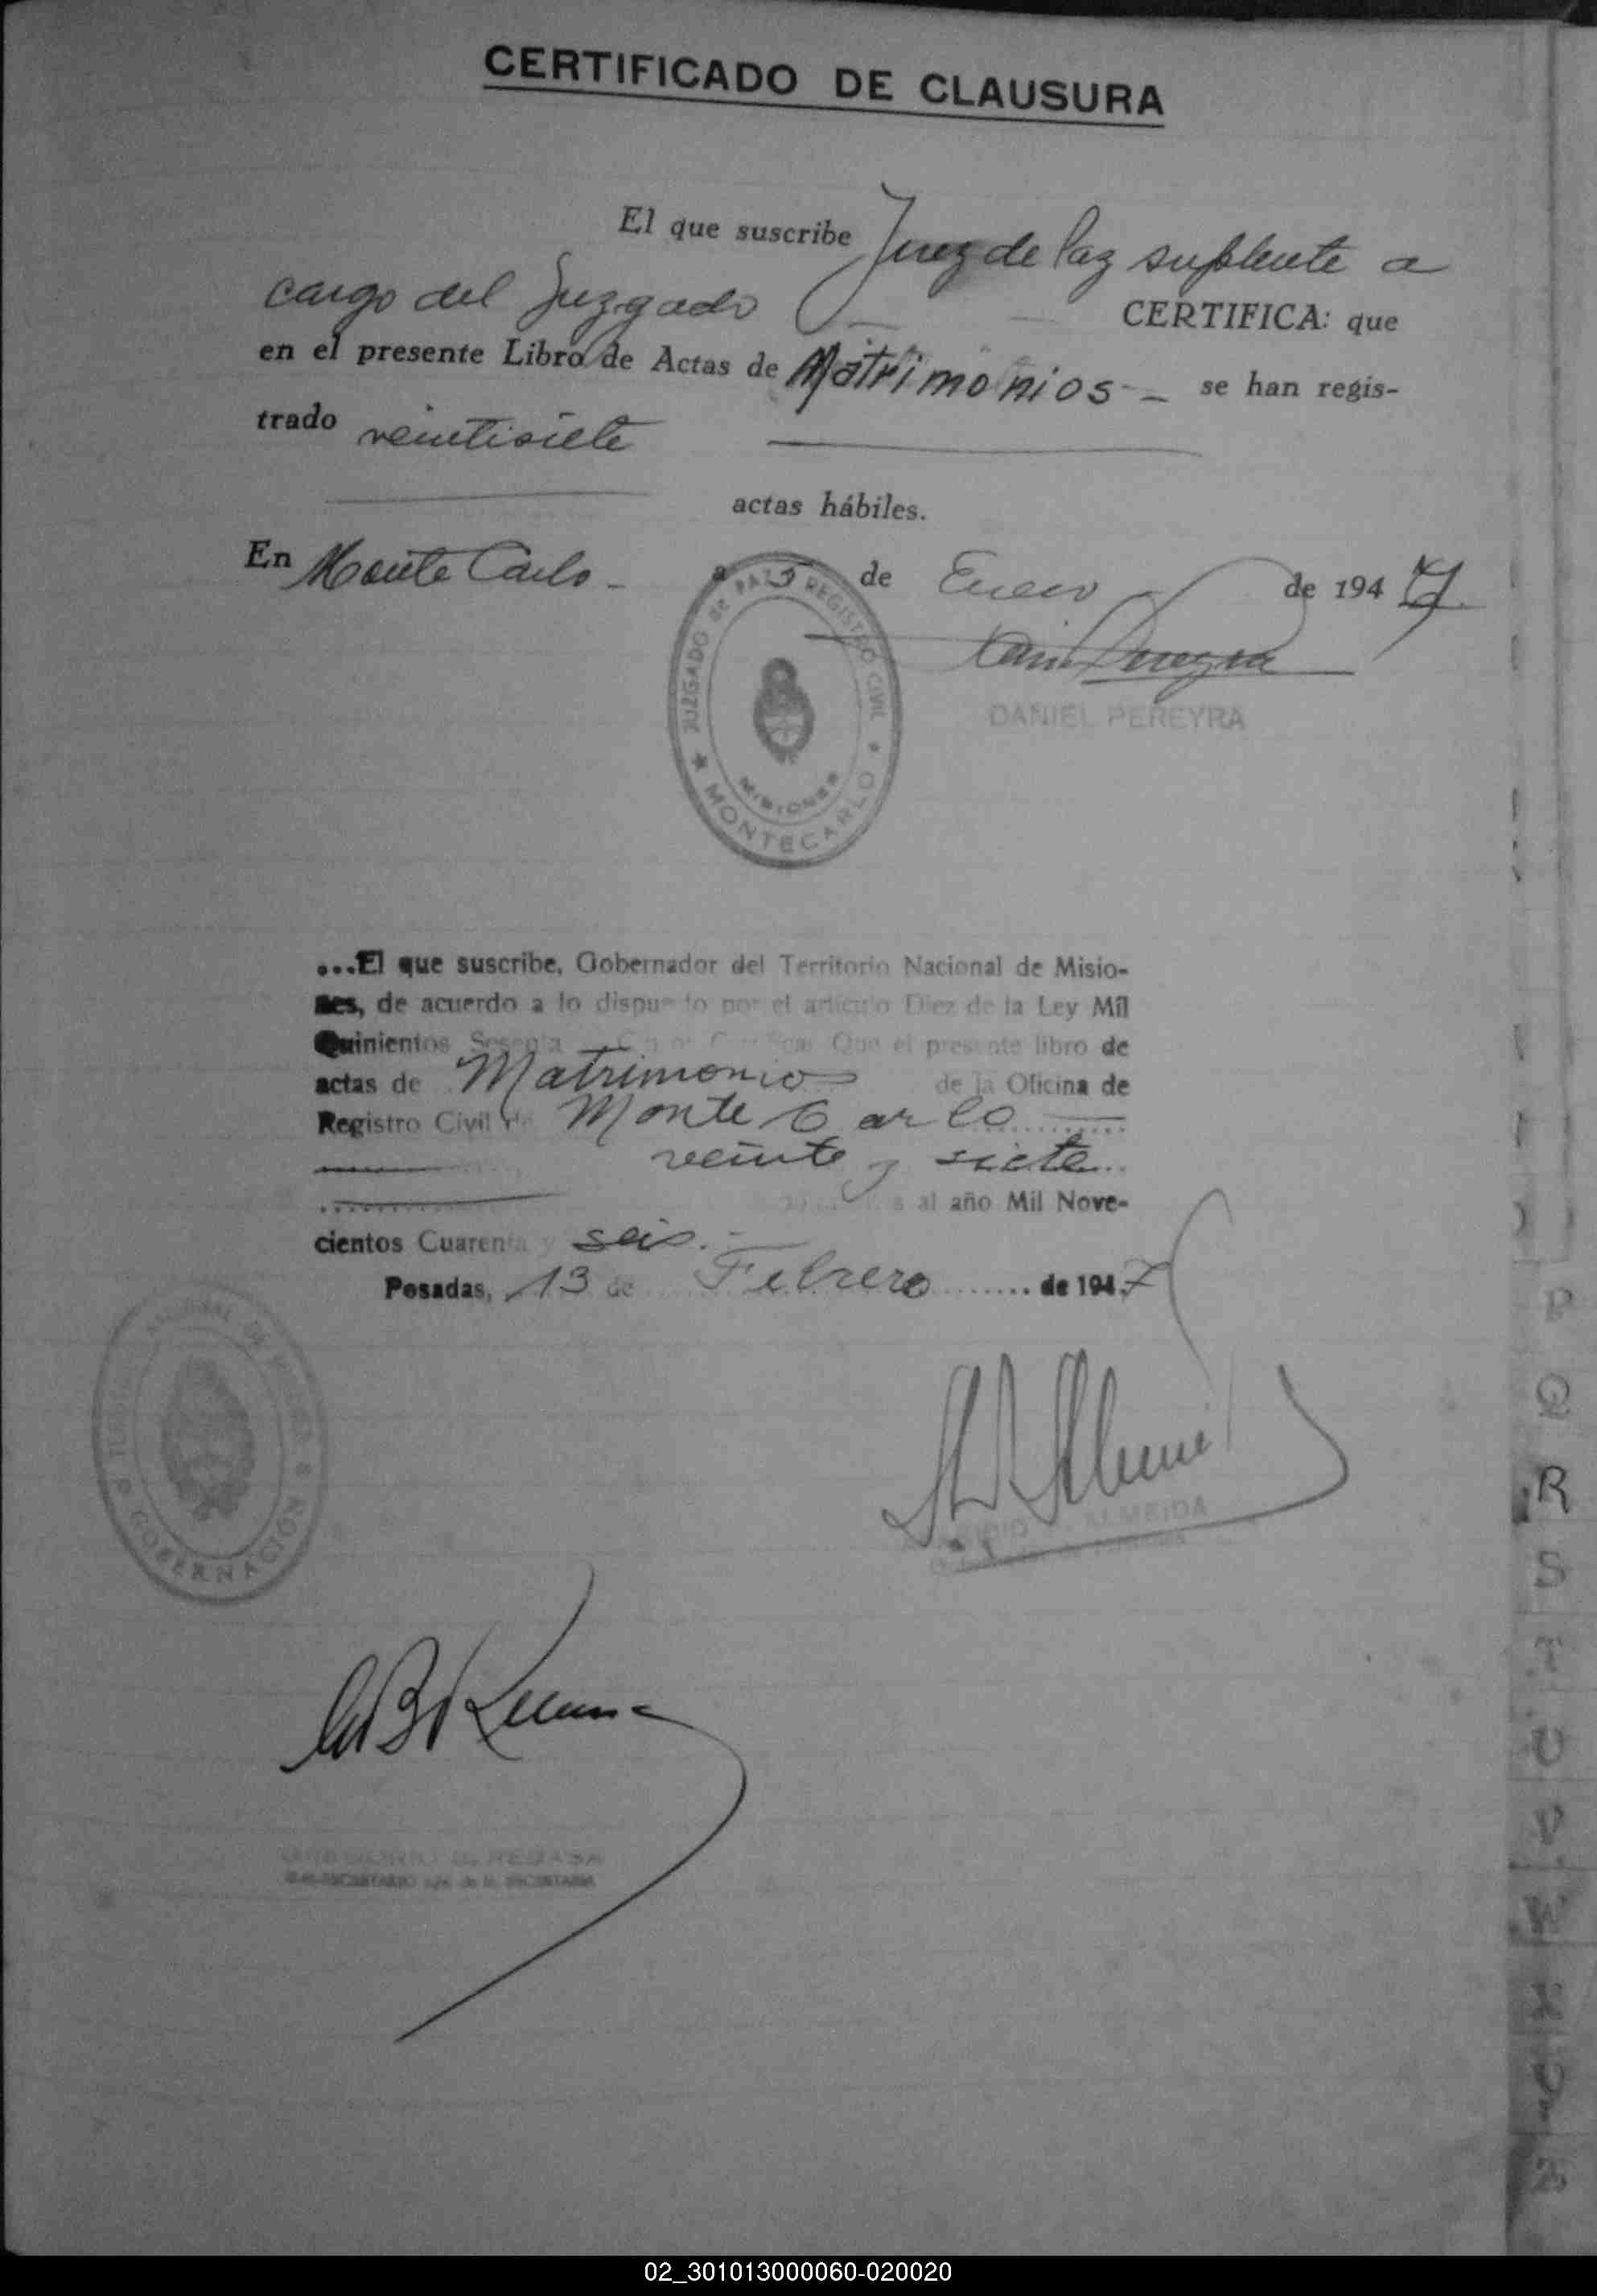 CERTIFICADO DE CLAUSURA
El que suscribe Juez de Paz suplente a
cargo del Juzgado CERTIFICA: que
en el presente Libro de Actas de Matrimonios se han regis-
trado veintisiete
actas hábiles.
En Monte Carlo - a 5 de Enero de 1947.
DANIEL PEREYRA
JUZGADO DE PAZ Y REGISTRO CIVIL
MISIONES
MONTECARLO
...El que suscribe, Gobernador del Territorio Nacional de Misio-
nes, de acuerdo a lo dispuesto por el artículo Diez de la Ley Mil
Quinientos Sesenta Que el presente libro de
actas de Matrimonio de la Oficina de
Registro Civil de Monte Carlo
veinte y siete
al año Mil Nove-
cientos Cuarenta y seis.-
Posadas, 13 de Febrero de 1947
GOBERNACIÓN
ALMEIDA
P
Q
R
S
T
U
V
W
X
Z
02_301013000060-020020